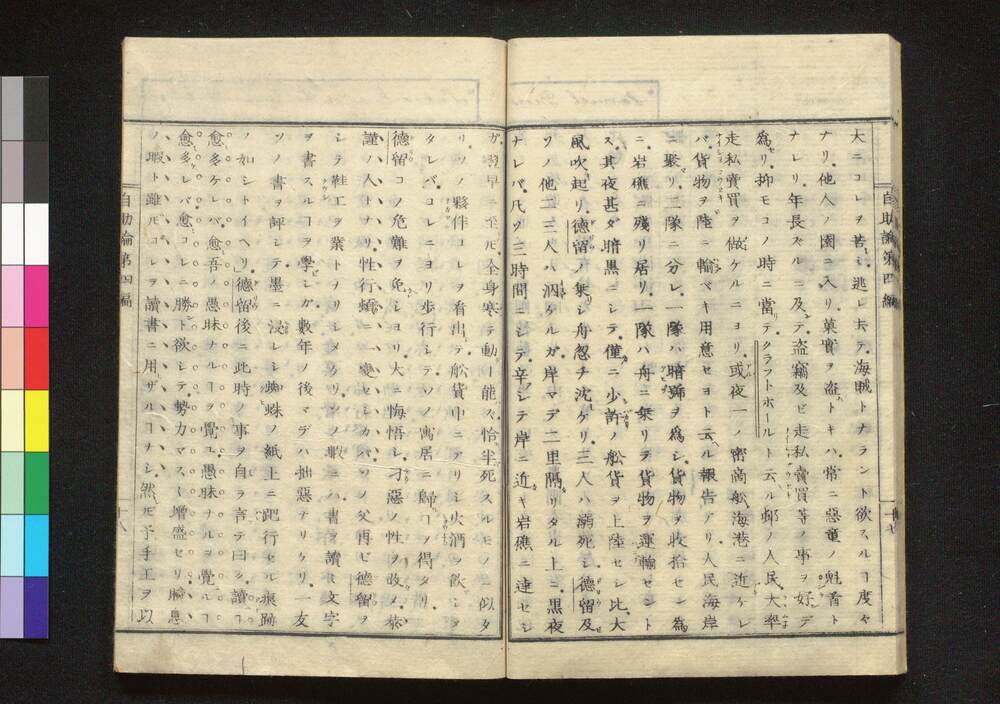 大ニコレヲ苦シ逃レ去テ海賊トナラント欲スルヿ度々
ナリ他人ノ園ニ入リ菓實ヲ盗トキハ常ニ惡童ノ魁首ト
ナレリ年長ズルニ及デ盗竊及ビ走私賣買等ノ事ヲ好デ
爲リ抑モコノ時ニ當テクラフトホールト云ル邨ノ人民大率
走私賣買ヲ做ケルニヨリ或夜一ノ密商舩海港ニ近ケレ
バ貨物ヲ陸ニ輸ベキ用意セヨト云ヘル報告アリ人民海岸
ニ聚リ二隊ニ分レ一隊ハ暗號ヲ爲シ貨物ヲ收拾セン爲
ニ岩礁ニ殘リ居リ一隊ハ舟ニ乘リテ貨物ヲ運輸セント
ス其夜甚ダ暗黒ニシテ僅ニ少許ノ舩貨ヲ上陸セシ比大
風吹起リ德留ノ乘シ舟忽チ沈ケリ三人ハ溺死シ德留及
ソノ他二三人ハ泅ケルガ岸マデ二里隔リタル上ニ黒夜
ナレバ凡ソ三時間ニシテ辛シテ岸ニ近キ岩礁ニ達セシ
自助論第四編
十七
ガ翌早ニ至𪜈全身寒テ動ヿ能ズ恰半死スルモノニ似タ
リソノ夥伴コレヲ看出デ舩貨中ニアリシ火酒ヲ飮シメ
タレバコレニヨリ歩行シテソノ寓居ニ歸ヿヲ得タリ
德留コノ危難ヲ免シヨリ大ニ悔悟シ刁惡ノ性ヲ改メ恭
謹ノ人トナリ性行驕ニ一變セシカバソノ父再ビ德留ヲ
シテ鞋工ヲ業トナリシメケリソノ暇ニハ書ヲ讀ミ文字
ヲ書スルヿヲ學シガ數年ノ後マデハ拙惡ナリケリ一友
ソノ書ヲ評シテ墨ニ浸レシ蜘蛛ノ紙上ニ跁行セル痕跡
ノ如シトイヘリ德留後ニ此時ノ事ヲ自ラ言テ曰ク讀ヿ
愈多ケレバ愈吾ノ愚昧ナルヿヲ覺ユ愚昧ナルヲ覺ルヿ
愈多レバ愈コレニ勝ト欲シテ勢力マス〱增盛セリ瞬息
ノ暇ト雖𪜈コレヲ讀書ニ用ザルヿナシ然𪜈予手工ヲ以
自助論第四編
十八